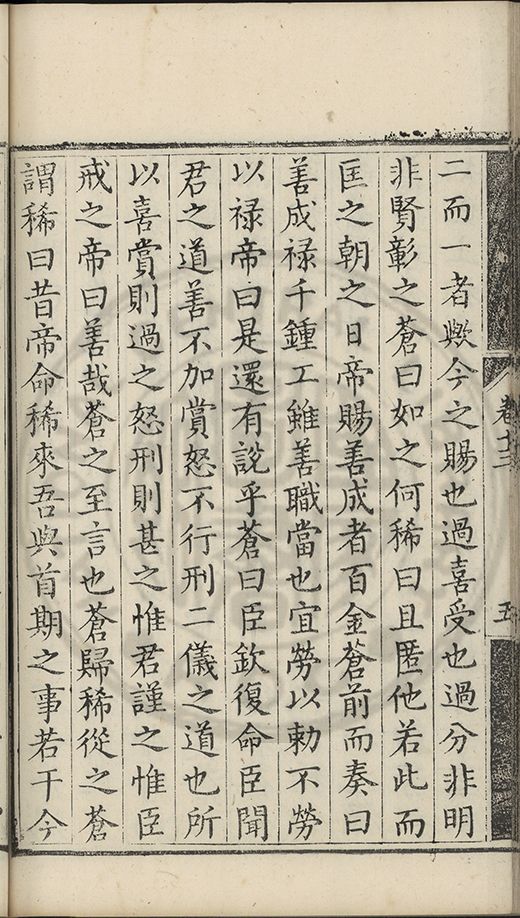 二而一者歟今之賜也過喜受也過分非明
非賢彰之蒼曰如之何稀曰且匿他若此而
匡之朝之日帝賜善成者百金蒼前而奏曰
善成祿千鍾工雖善職當也宜勞以勅不勞
以祿帝曰是還有說乎蒼曰臣欽復命臣聞
君之道善不加賞怒不行刑二儀之道也所
以喜賞則過之怒刑則甚之惟君謹之惟臣
戒之帝曰善哉蒼之至言也蒼歸稀從之蒼
謂稀曰昔帝命稀來吾與首期之事若干今
卷十三
五